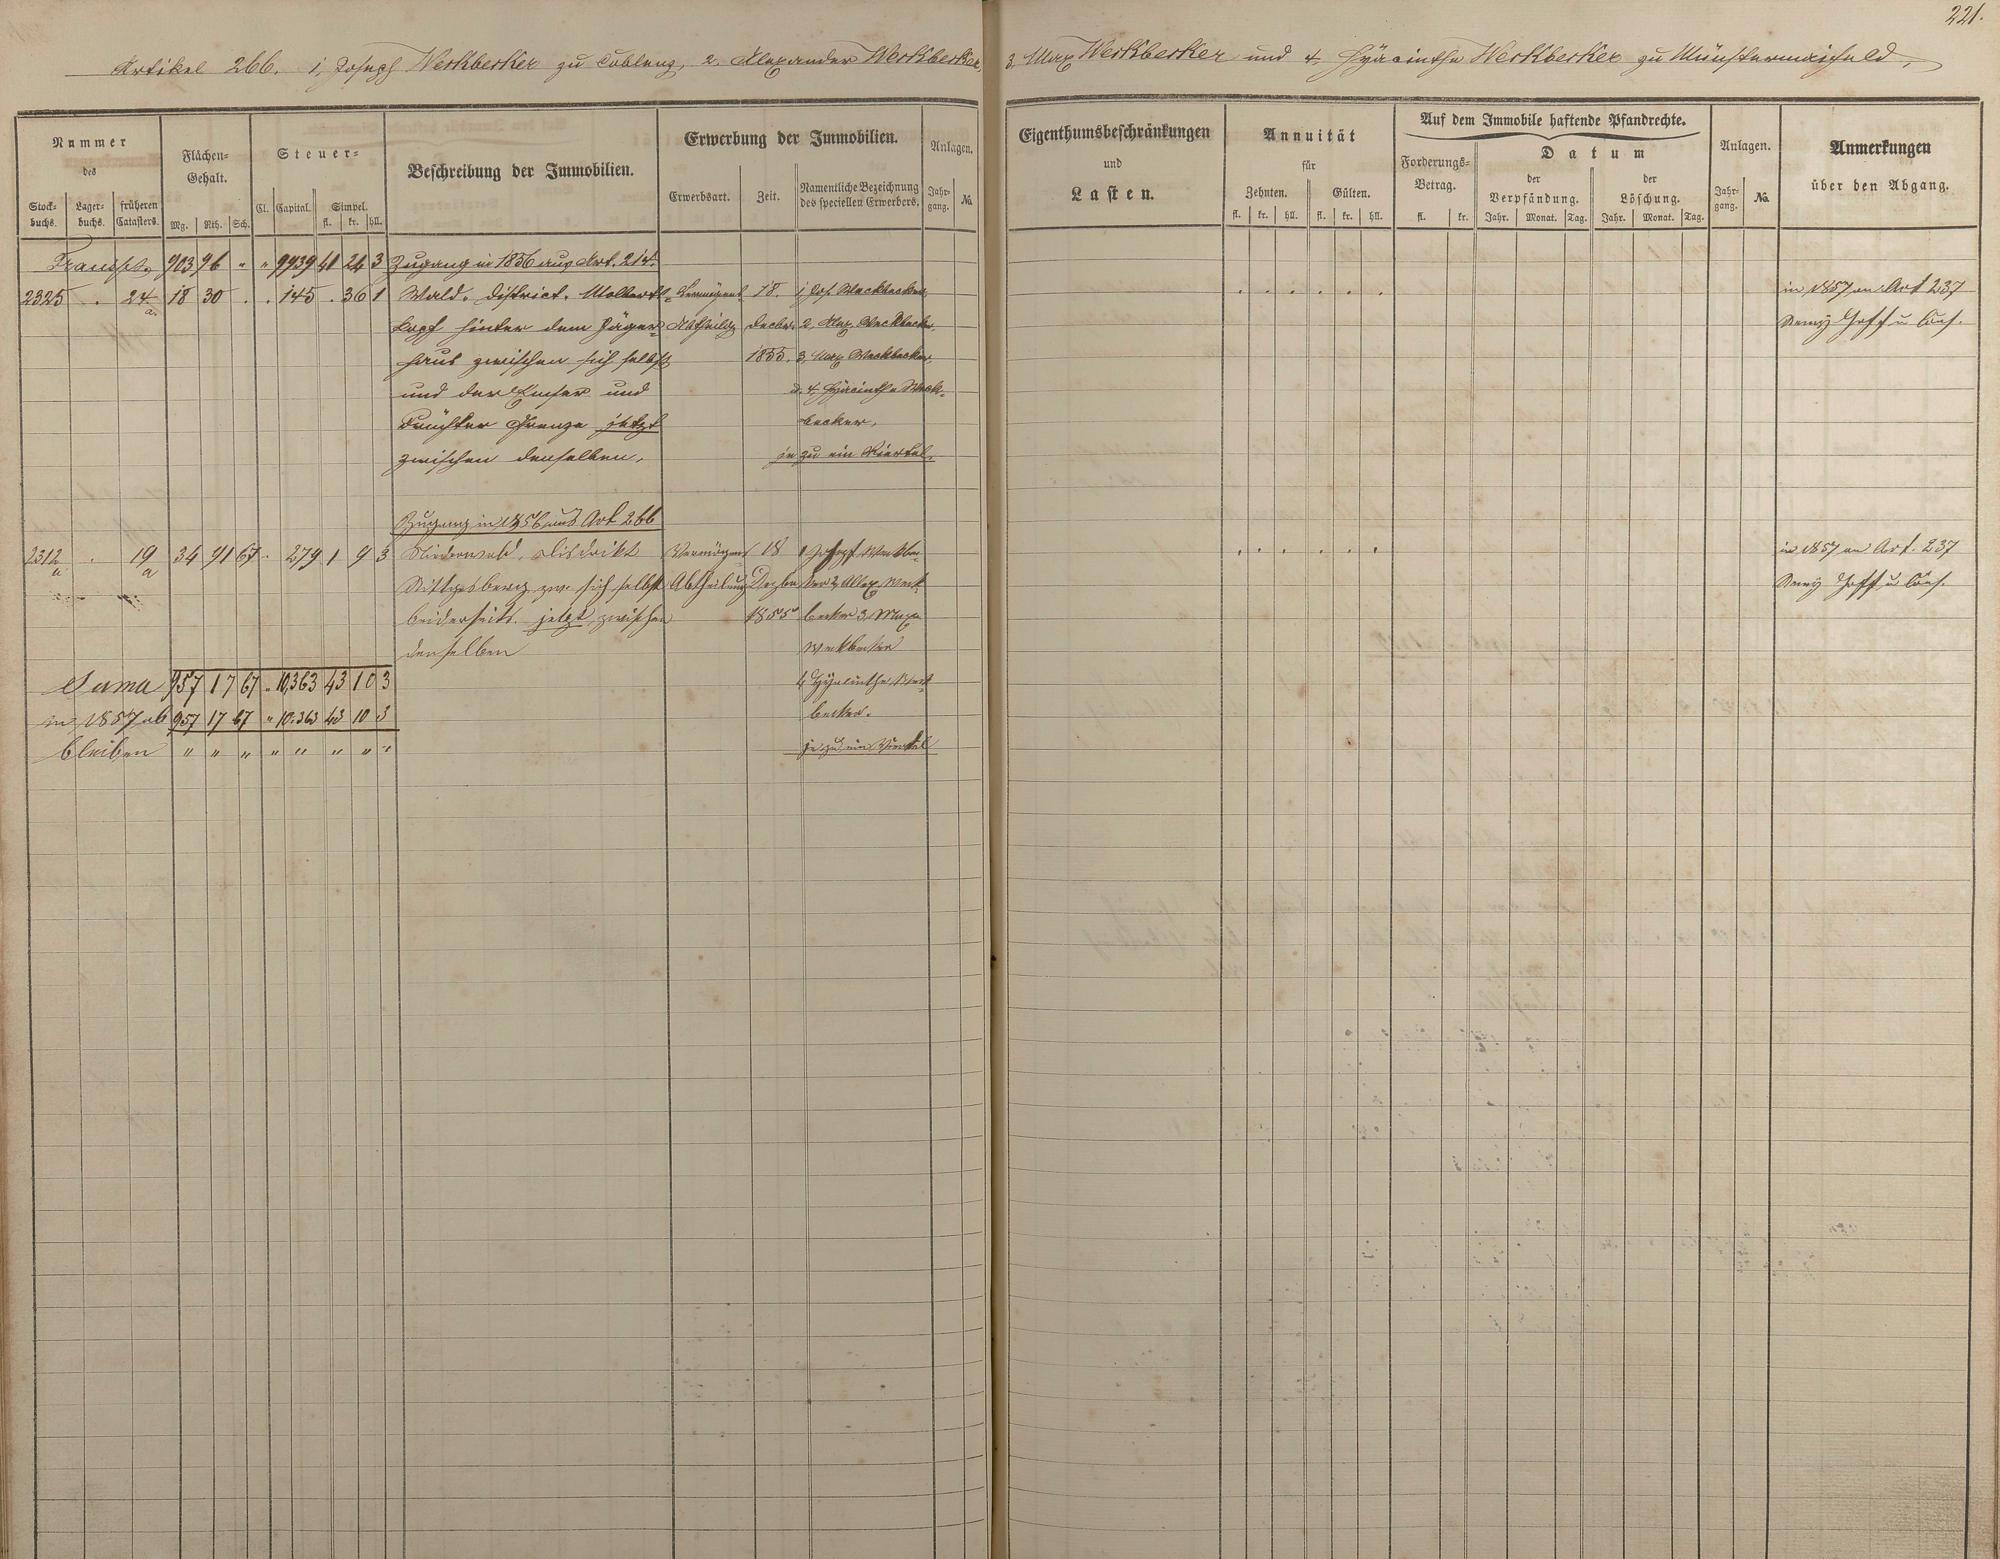 221.
Artikel 266. 1, Joseph Weckbecker zu Coblenz, 2, Alexander Weckbecker, 3, Max Weckbecker und 4, Hyacinthe Weckbecker zu Münstermaifeld,
Nummer
des
Stock-buchs. Lager-buchs. früheren Catasters.
Flächen-Gehalt.
Mg. Rth. Sch.
Steuer-
Cl. Capital. Simpel.
fl. kr. hll.
Beschreibung der Immobilien.
Erwerbung der Immobilien.
Erwerbsart. Zeit. Namentliche Bezeichnung des speciellen Erwerbers.
Anlagen.
Jahr-gang. No.
Eigenthumsbeschränkungen
und
Lasten.
Annuität
für
Zehnten. Gülten.
fl. kr. hll. fl. kr. hll.
Auf dem Immobile haftende Pfandrechte.
Forderungs-Betrag.
fl. kr.
Datum
der Verpfändung. der Löschung.
Jahr. Monat. Tag. Jahr. Monat. Tag.
Anlagen.
Jahr-gang. No.
Anmerkungen
über den Abgang.
Transpt. 903 96 " " 9939 41 24 3 Zugang in 1856 aus Art. 214.
2325 . 24 18 30 . . 145 . 36 1 Wald, District, Vermögens 18. 1, Jos. Weckbecker, in 1857 an Art 237
a.
kopf hinter dem Jäger- Abtheilg Decbr. 2, Alex. Weckbecker, Hoff u Cons.
haus zwischen sich selbst 1855. 3, Max Weckbecker,
und der Emser und u. 4, Hyacinthe Weck-
Früchter Grenze jetzt becker,
zwischen denselben, je zu ein Viertel.
Zugang in 1856 aus Art 266
2312 . 19 34 91 67 . 279 1 9 3 Niederwald, Distrikt Vermögens 18 1 Joseph Weckbe- in 1857 an Art. 237
a a
zw. sich selbst Abtheilung Dezbr cker 2, Alex Weck- Hoff u Cons.
beiderseits, jetzt zwischen 1855 becker 3, Max
denselben Weckbecker
Suma 957 17 67 " 10,363 43 10 3 4 Hyacinthe Weck-
in 1857 ab 957 17 67 " 10.363 43 10 3 becker.
bleiben " " " " " " " " je zu ein Viertel